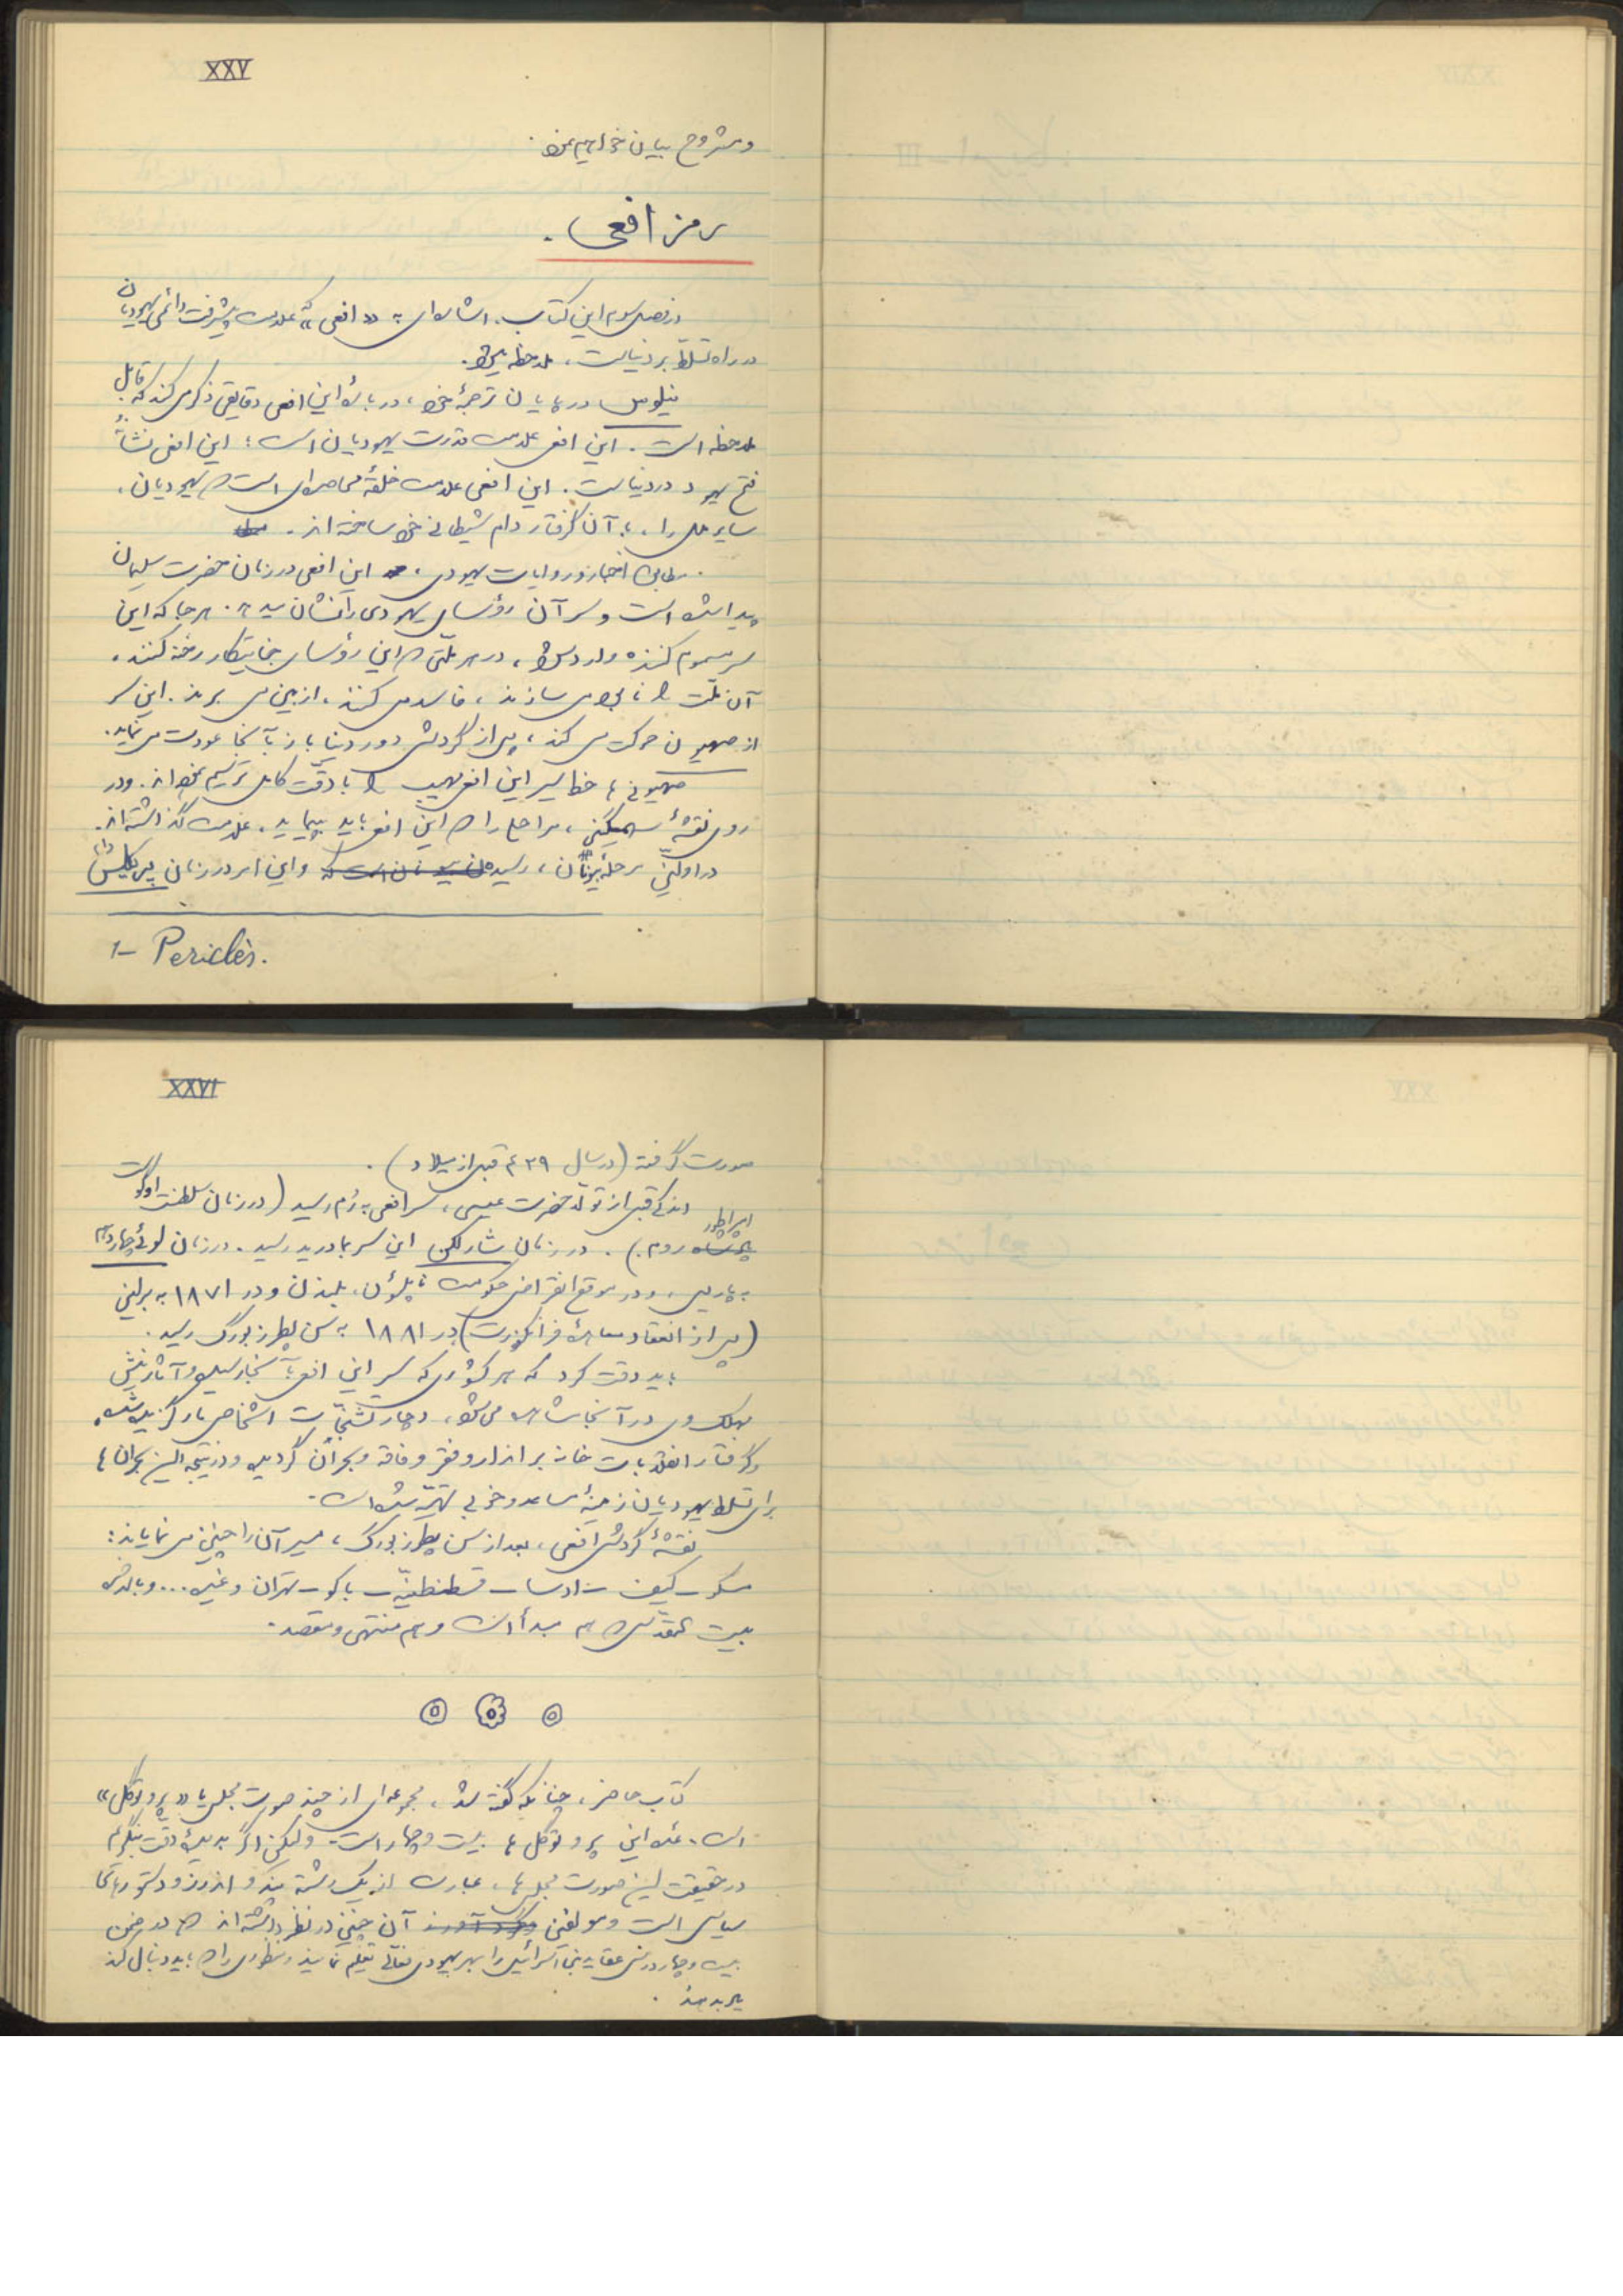 XXV
ومشروح بیان خواهیم نمود.
رمز افعی.
در فصل سوم این کتاب، اشاره‌ای به «افعی» که علامت پیشرفت دائمی یهودیان
در راه تسلط بر دنیاست، ملاحظه میشود.
نیلوس در پایان ترجمهٔ خود، دربارهٔ این افعی دقایقی ذکر می‌کند که قابل
ملاحظه است. این افعی علامت قدرت یهودیان است؛ این افعی نشانهٔ
فتح یهود در دنیاست. این افعی علامت حلقهٔ محاصره‌ای است که یهودیان،
سایر ملل را، با آن گرفتار دام شیطانی خود ساخته‌اند.
مطابق اخبار و روایات یهودی، این افعی در زمان حضرت سلیمان
پیدا شده است و سر آن رؤسای یهودی را نشان میدهد. هر جا که این
سر مسموم کننده وارد شود، در هر ملتی که این رؤسای جنایتکار رخنه کنند،
آن ملت را نابود می سازند، فاسد می کنند، از بین می برند. این سر
از صهیون حرکت می کند، پس از گردش دور دنیا باز بآنجا عودت می نماید.
صهیونی ها خط سیر این افعی مهیب را با دقت کامل ترسیم نموده‌اند. و در
روی نقشهٔ ، مراحلی را که این افعی باید بپیماید، علامت گذاشته‌اند.
در اولین مرحله بیونان، رسیده و این امر در زمان پریکلس (۱)
1- Pericles.
XXVI
صورت گرفته (در سال ۴۲۹ قبل از میلاد).
اندکی قبل از تولد حضرت عیسی، سر افعی به رُم رسید (در زمان سلطنت اوگوست
امپراطور روم). در زمان شارلکن این سر بمادرید رسید. در زمان لوئی چهاردهم
به پاریس، و در موقع انقراض حکومت ناپلئون، بلندن و در ۱۸۷۱ به برلین
(پس از انعقاد معاهدهٔ فرانکفورت) در ۱۸۸۱ به سن پطرزبورگ رسید.
باید دقت کرد که هر کشوری که سر این افعی بآنجا رسیده و آثار نیش
مهلک وی در آنجا مشاهده می‌شود، دچار تشنجات اشخاص
و گرفتار انقلابات خانه برانداز و فقر و فاقه و بحران گردیده و در نتیجه این بحران ها
برای تسلط یهودیان زمینهٔ مساعد و خوبی تهیّه شده است.
نقشهٔ گردش افعی، بعد از سن پطرزبورگ، مسیر آن را چنین می نمایاند:
مسکو ـ کیف ـ ادسا ـ قسطنطنیّه ـ باکو ـ تهران و غیره... و بالاخره
بیت المقدس که هم مبدأ است و هم منتهی و مقصد.
کتاب حاضر، چنانکه گفته شد، مجموعه‌ای از چند صورت مجلس یا «پروتوکل»
است. عدهٔ این پروتوکل ها بیست و چهار است. ولیکن اگر بدیدهٔ دقت بنگریم
در حقیقت این صورت مجلس ها، عبارت از یک رشته پند و اندرز و دستورهای
سیاسی است و مؤلفین آن چنین در نظر داشته‌اند که در ضمن
بیست و چهار درس عقاید بنی اسرائیل را بهر یهودی تعلیم نمایند و راهی را که باید دنبال کند